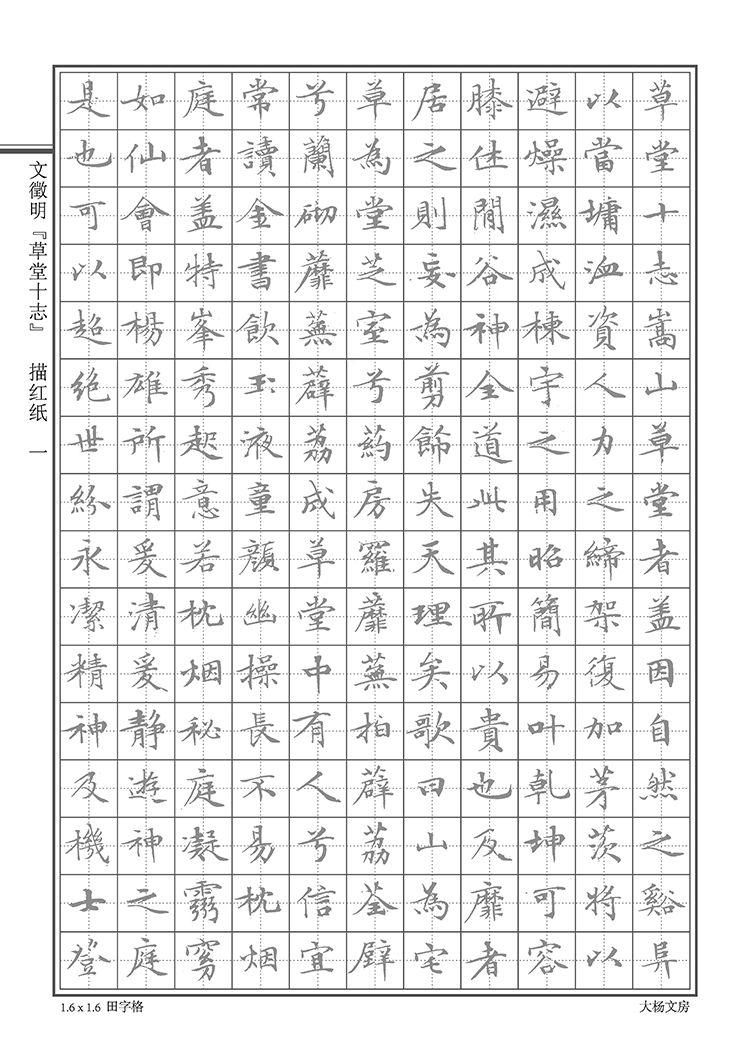 草堂十志嵩山草堂者盖因自然之谿阜
以當墉洫資人力之締架復加茅茨將以
避燥濕成棟宇之用昭簡易叶乾坤可容
膝休閒谷神全道此其所以貴也及靡者
居之則妄為剪飾失天理矣歌曰山為宅
草為堂芝室兮葯房羅蘼蕪拍薜荔荃壁
兮蘭砌蘼蕪薜荔成草堂中有人兮信宜
常讀金書飲玉液童顏幽操長不易枕烟
庭者盖特峯秀起意若枕烟秘庭凝霧窮
如仙會即楊雄所謂爰清爰静遊神之庭
是也可以超絶世紛永潔精神及機士登
文徵明『草堂十志』 描红纸 一
1.6 x 1.6 田字格
大杨文房